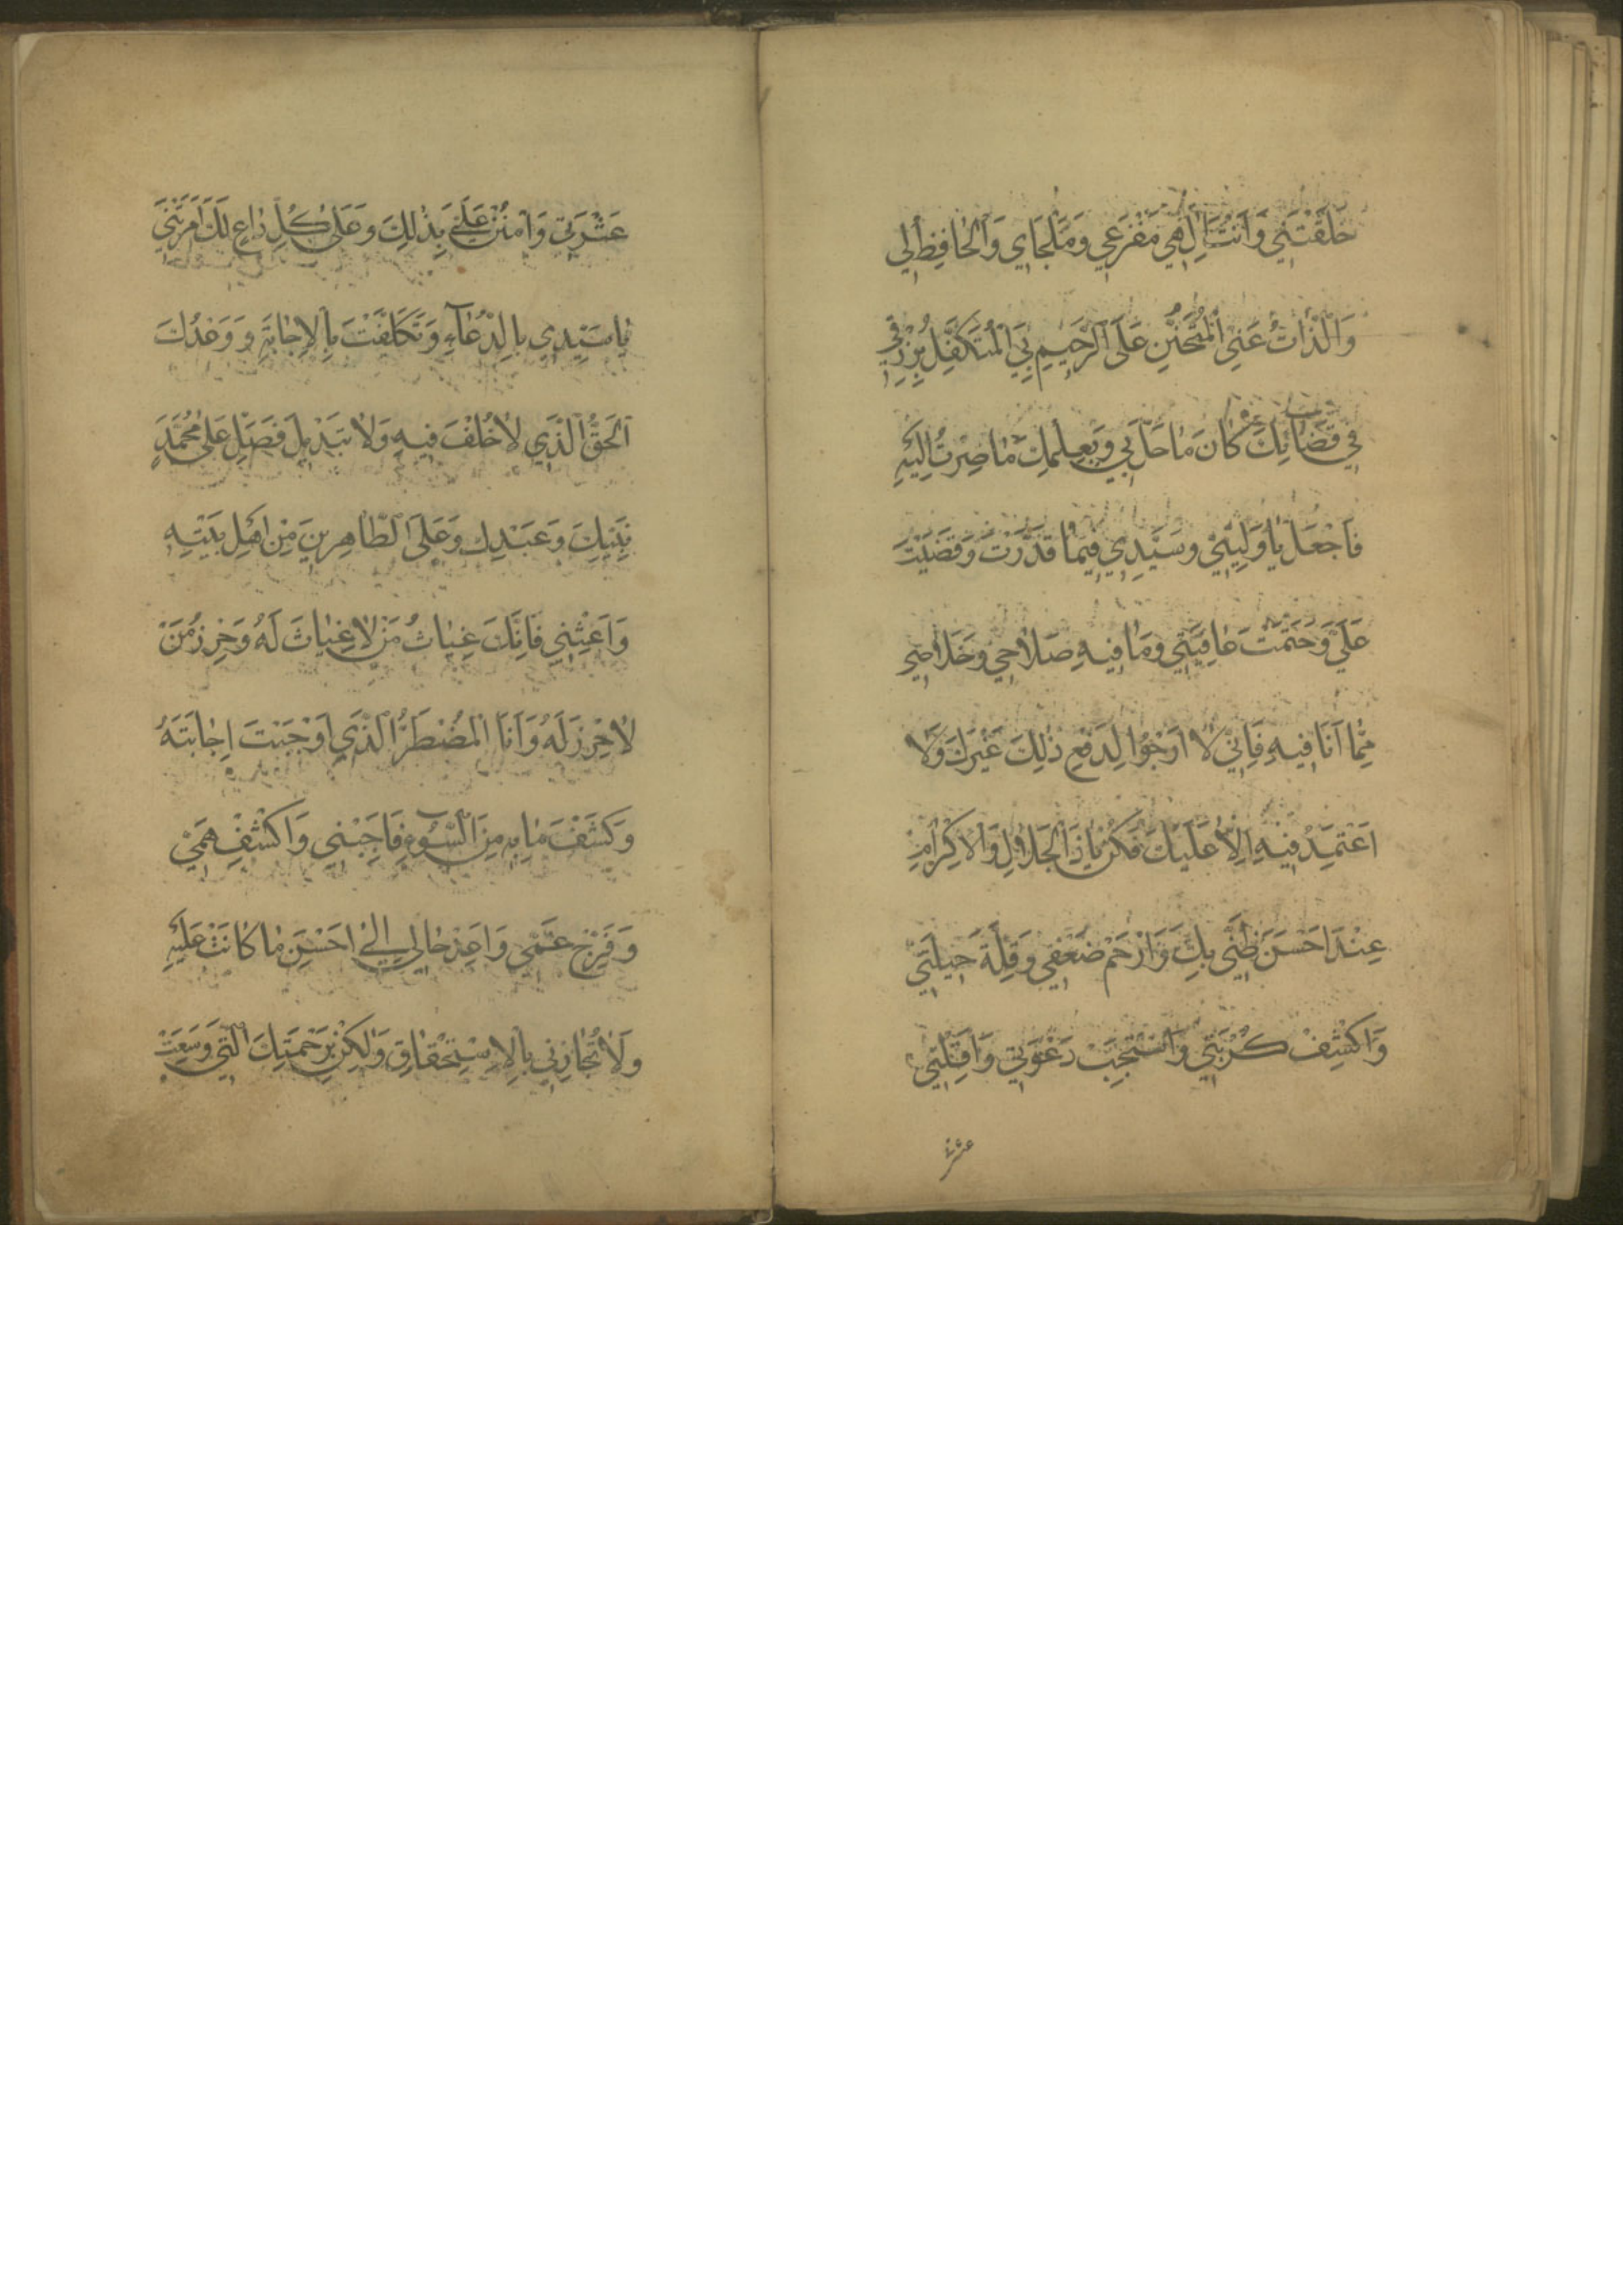 خَلَقْتَنِي وَاَنْتَ اِلٰهِي مَفْزَعِي وَمَلْجَاي وَالْحَافِظُ لِي
وَالذَّابُّ عَنِّي الْمُتَحَنِّنِ عَلَى الرَّحِيمِ بِيَ الْمُتَكَفِّلُ بِرِزْقِي
فِي قَضَائِكَ كَانَ مَا حَلَّ بِي وَبِعِلْمِكَ مَا صِرْتُ اِلَيْهِ
فَاجْعَلْ يَا وَلِيِّي وَسَيِّدِي فِيمَا قَدَّرْتَ وَقَضَيْتَ
عَلَيَّ وَحَتَمْتَ عَافِيَتِي وَمَا فِيهِ صَلَاحِي وَخَلَاصِي
مِمَّا اَنَا فِيهِ فَاِنِّي لَا اَرْجُوا لِدَفْعِ ذٰلِكَ غَيْرَكَ وَلَا
اَعْتَمِدُ فِيهِ اِلَّا عَلَيْكَ فَكُنْ يَا ذَا الْجَلَالِ وَالْاِكْرَامِ
عِنْدَ اَحْسَنِ ظَنِّي بِكَ وَارْحَمْ ضَعْفِي وَقِلَّةَ حِيلَتِي
وَاكْشِفْ كُرْبَتِي وَاسْتَجِبْ دَعْوَتِي وَاَقِلْنِي
عَثْرَتِي وَامْنُنْ عَلَيَّ بِذٰلِكَ وَعَلٰى كُلِّ دَاعٍ لَكَ اَمَرْتَنِي
يَا سَيِّدِي بِالدُّعَآءِ وَتَكَلَّفْتَ بِالْاِجَابَةِ وَوَعْدُكَ
الْحَقُّ الَّذِي لَا خُلْفَ فِيهِ وَلَا تَبْدِيلَ فَصَلِّ عَلٰى مُحَمَّدٍ
نَبِيِّكَ وَعَبْدِكَ وَعَلَى الطَّاهِرِينَ مِنْ اَهْلِ بَيْتِهِ
وَاَغِثْنِي فَاِنَّكَ غِيَاثُ مَنْ لَا غِيَاثَ لَهُ وَحِرْزُ مَنْ
لَا حِرْزَ لَهُ وَاَنَا الْمُضْطَرُّ الَّذِي اَوْجَبْتَ اِجَابَتَهُ
وَكَشْفَ مَا بِهِ مِنَ السُّوٓءِ فَاَجِبْنِي وَاكْشِفْ هَمِّي
وَفَرِّجْ غَمِّي وَاَعِدْ حَالِي اِلٰى اَحْسَنِ مَا كَانَتْ عَلَيْهِ
وَلَا تُجَازِنِي بِالْاِسْتِحْقَاقِ وَلٰكِنْ بِرَحْمَتِكَ الَّتِي وَسِعَتْ